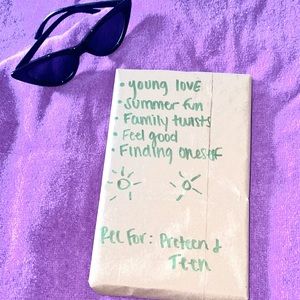 • young love
• summer fun
• Family twists
• Feel good
• Finding oneself
Rec For: Preteen &
Teen